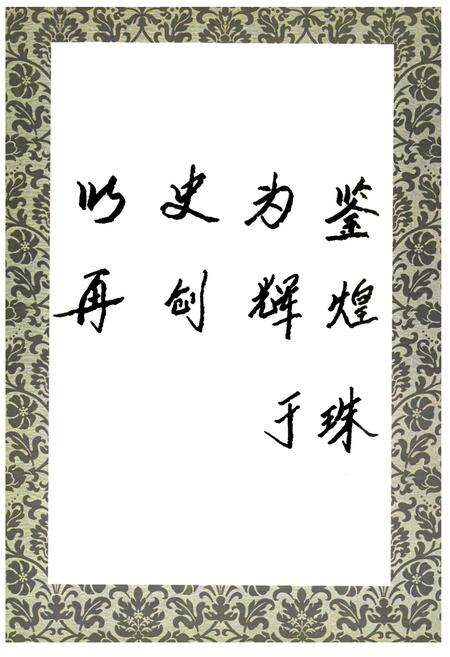 以史为鉴
再创辉煌
于珠